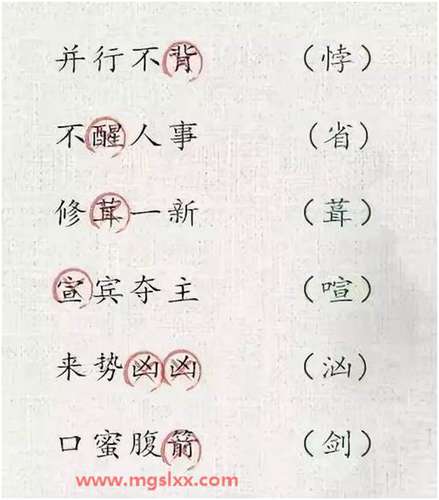 并行不背（悖）
不醒人事（省）
修茸一新（葺）
宣宾夺主（喧）
来势凶凶（汹）
口蜜腹箭（剑）
www.mgslxx.com